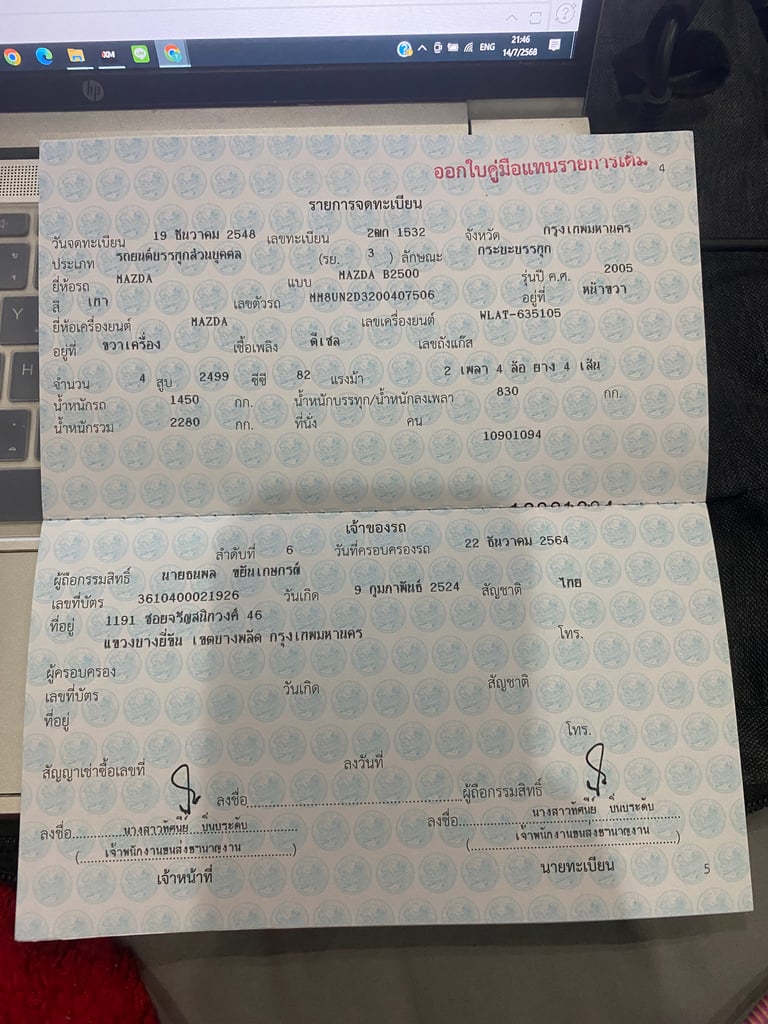 21:46
ENG
14/7/2568
hp
ออกใบคู่มือแทนรายการเดิม 4
รายการจดทะเบียน
วันจดทะเบียน 19 ธันวาคม 2548 เลขทะเบียน 2ฒก 1532 จังหวัด กรุงเทพมหานคร
ประเภท รถยนต์บรรทุกส่วนบุคคล (รย. 3 ) ลักษณะ กระบะบรรทุก
ยี่ห้อรถ MAZDA แบบ MAZDA B2500 รุ่นปี ค.ศ. 2005
สี เทา เลขตัวรถ MM8UN2D3200407506 อยู่ที่ หน้าขวา
ยี่ห้อเครื่องยนต์ MAZDA เลขเครื่องยนต์ WLAT-635105
อยู่ที่ ขวาเครื่อง เชื้อเพลิง ดีเซล เลขถังแก๊ส
จำนวน 4 สูบ 2499 ซีซี 82 แรงม้า 2 เพลา 4 ล้อ ยาง 4 เส้น
น้ำหนักรถ 1450 กก. น้ำหนักบรรทุก/น้ำหนักลงเพลา 830 กก.
น้ำหนักรวม 2280 กก. ที่นั่ง คน
10901094
เจ้าของรถ
ลำดับที่ 6 วันที่ครอบครองรถ 22 ธันวาคม 2564
ผู้ถือกรรมสิทธิ์ นายธนพล ขยันเกษกรณ์
เลขที่บัตร 3610400021926 วันเกิด 9 กุมภาพันธ์ 2524 สัญชาติ ไทย
ที่อยู่ 1191 ซอยจรัญสนิทวงศ์ 46
แขวงบางยี่ขัน เขตบางพลัด กรุงเทพมหานคร โทร.
ผู้ครอบครอง
เลขที่บัตร วันเกิด สัญชาติ
ที่อยู่
โทร.
สัญญาเช่าซื้อเลขที่ ลงวันที่
ลงชื่อ ผู้ถือกรรมสิทธิ์
ลงชื่อ นางสาวทัศนีย์ ปิ่นประดับ ลงชื่อ นางสาวทัศนีย์ ปิ่นประดับ
(เจ้าพนักงานขนส่งชำนาญงาน) (เจ้าพนักงานขนส่งชำนาญงาน)
เจ้าหน้าที่ นายทะเบียน 5